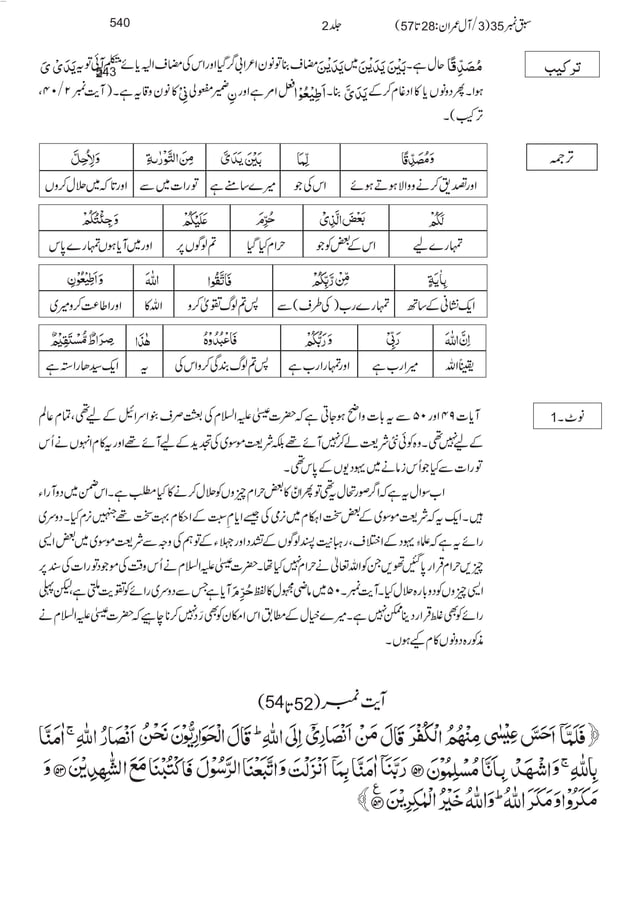 سبق نمبر 35(3/آل عمران:28 تا 57) جلد 2 540
ترکیب
مُصَدِّقًا حال ہے۔ بَیْنَ یَدَیْنَ میں یَدَیْنَ مضاف بنا تو نون اعرابی گر گیا اور اس کی مضاف الیہ یائے متکلم آئی تو یہ یَدَیْ یَ
243
ہوا۔ پھر دونوں یا کا ادغام کر کے یَدَیَّ بنا۔ اَطِیْعُوْا فعل امر ہے اور نِ ضمیر مفعولی نِیْ کا نون وقایہ ہے۔ (آیت نمبر ۲/۴۰،
ترکیب)۔
ترجمہ
وَمُصَدِّقًا لِّمَا بَیْنَ یَدَیَّ مِنَ التَّوْرٰىةِ وَلِاُحِلَّ
اور تصدیق کرنے والا ہوتے ہوئے اس کی جو میرے سامنے ہے تورات میں سے اور تاکہ میں حلال کروں
لَکُمْ بَعْضَ الَّذِیْ حُرِّمَ عَلَیْکُمْ وَجِئْتُکُمْ
تمہارے لیے اس کے بعض کو جو حرام کیا گیا تم لوگوں پر اور میں آیا ہوں تمہارے پاس
بِاٰیَةٍ مِّنْ رَّبِّکُمْ فَاتَّقُوا اللّٰہَ وَاَطِیْعُوْنِ
ایک نشانی کے ساتھ تمہارے رب (کی طرف) سے پس تم لوگ تقویٰ کرو اللہ کا اور اطاعت کرو میری
اِنَّ اللّٰہَ رَبِّیْ وَرَبُّکُمْ فَاعْبُدُوْہُ ھٰذَا صِرَاطٌ مُّسْتَقِیْمٌ
یقیناً اللہ میرا رب ہے اور تمہارا رب ہے پس تم لوگ بندگی کرو اس کی یہ ایک سیدھا راستہ ہے
نوٹ۔1
آیات ۴۹ اور ۵۰ سے یہ بات واضح ہو جاتی ہے کہ حضرت عیسیٰ علیہ السلام کی بعثت صرف بنو اسرائیل کے لیے تھی، تمام عالم
کے لیے نہیں تھی۔ وہ کوئی نئی شریعت لے کر نہیں آئے تھے بلکہ شریعت موسوی کی تجدید کے لیے آئے تھے اور یہ کام انہوں نے اُس
تورات سے کیا جو اُس زمانے میں یہودیوں کے پاس تھی۔
اب سوال یہ ہے کہ اگر صورتحال یہ تھی تو پھر ان کا بعض حرام چیزوں کو حلال کرنے کا کیا مطلب ہے۔ اس ضمن میں دو آراء
ہیں۔ ایک یہ کہ شریعت موسوی کے بعض سخت احکام میں نرمی کی جیسے ایام سبت کے احکام بہت سخت تھے جنہیں نرم کیا۔ دوسری
رائے یہ ہے کہ علماء یہود کے اختلاف، رہبانیت پسند لوگوں کے تشدد اور جہلاء کے توہم کی وجہ سے شریعت موسوی میں بعض ایسی
چیزیں حرام قرار پا گئیں تھیں جن کو اللہ تعالیٰ نے حرام نہیں کیا تھا۔ حضرت عیسیٰ علیہ السلام نے اُس وقت کی موجود تورات کی سند پر
ایسی چیزوں کو دوبارہ حلال کیا۔ آیت نمبر۔۵۰ میں ماضی مجہول کا لفظ حُرِّمَ آیا ہے جس سے دوسری رائے کو تقویت ملتی ہے، لیکن پہلی
رائے کو بھی غلط قرار دینا ممکن نہیں ہے۔ میرے خیال کے مطابق اس امکان کو بھی رَد نہیں کرنا چاہیے کہ حضرت عیسیٰ علیہ السلام نے
مذکورہ دونوں کام کیے ہوں۔
آیت نمبر (52 تا 54)
﴿فَلَمَّاۤ اَحَسَّ عِیْسٰی مِنْهُمُ الْكُفْرَ قَالَ مَنْ اَنْصَارِیْۤ اِلَی اللّٰهِ ؕ قَالَ الْحَوَارِیُّوْنَ نَحْنُ اَنْصَارُ اللّٰهِ ۚ اٰمَنَّا
بِاللّٰهِ ۚ وَاشْهَدْ بِاَنَّا مُسْلِمُوْنَ ﴿۵۲﴾ رَبَّنَاۤ اٰمَنَّا بِمَاۤ اَنْزَلْتَ وَاتَّبَعْنَا الرَّسُوْلَ فَاكْتُبْنَا مَعَ الشّٰهِدِیْنَ ﴿۵۳﴾ وَ
مَكَرُوْا وَ مَكَرَ اللّٰهُ ؕ وَاللّٰهُ خَیْرُ الْمٰكِرِیْنَ ﴿۵۴﴾ ع﴾